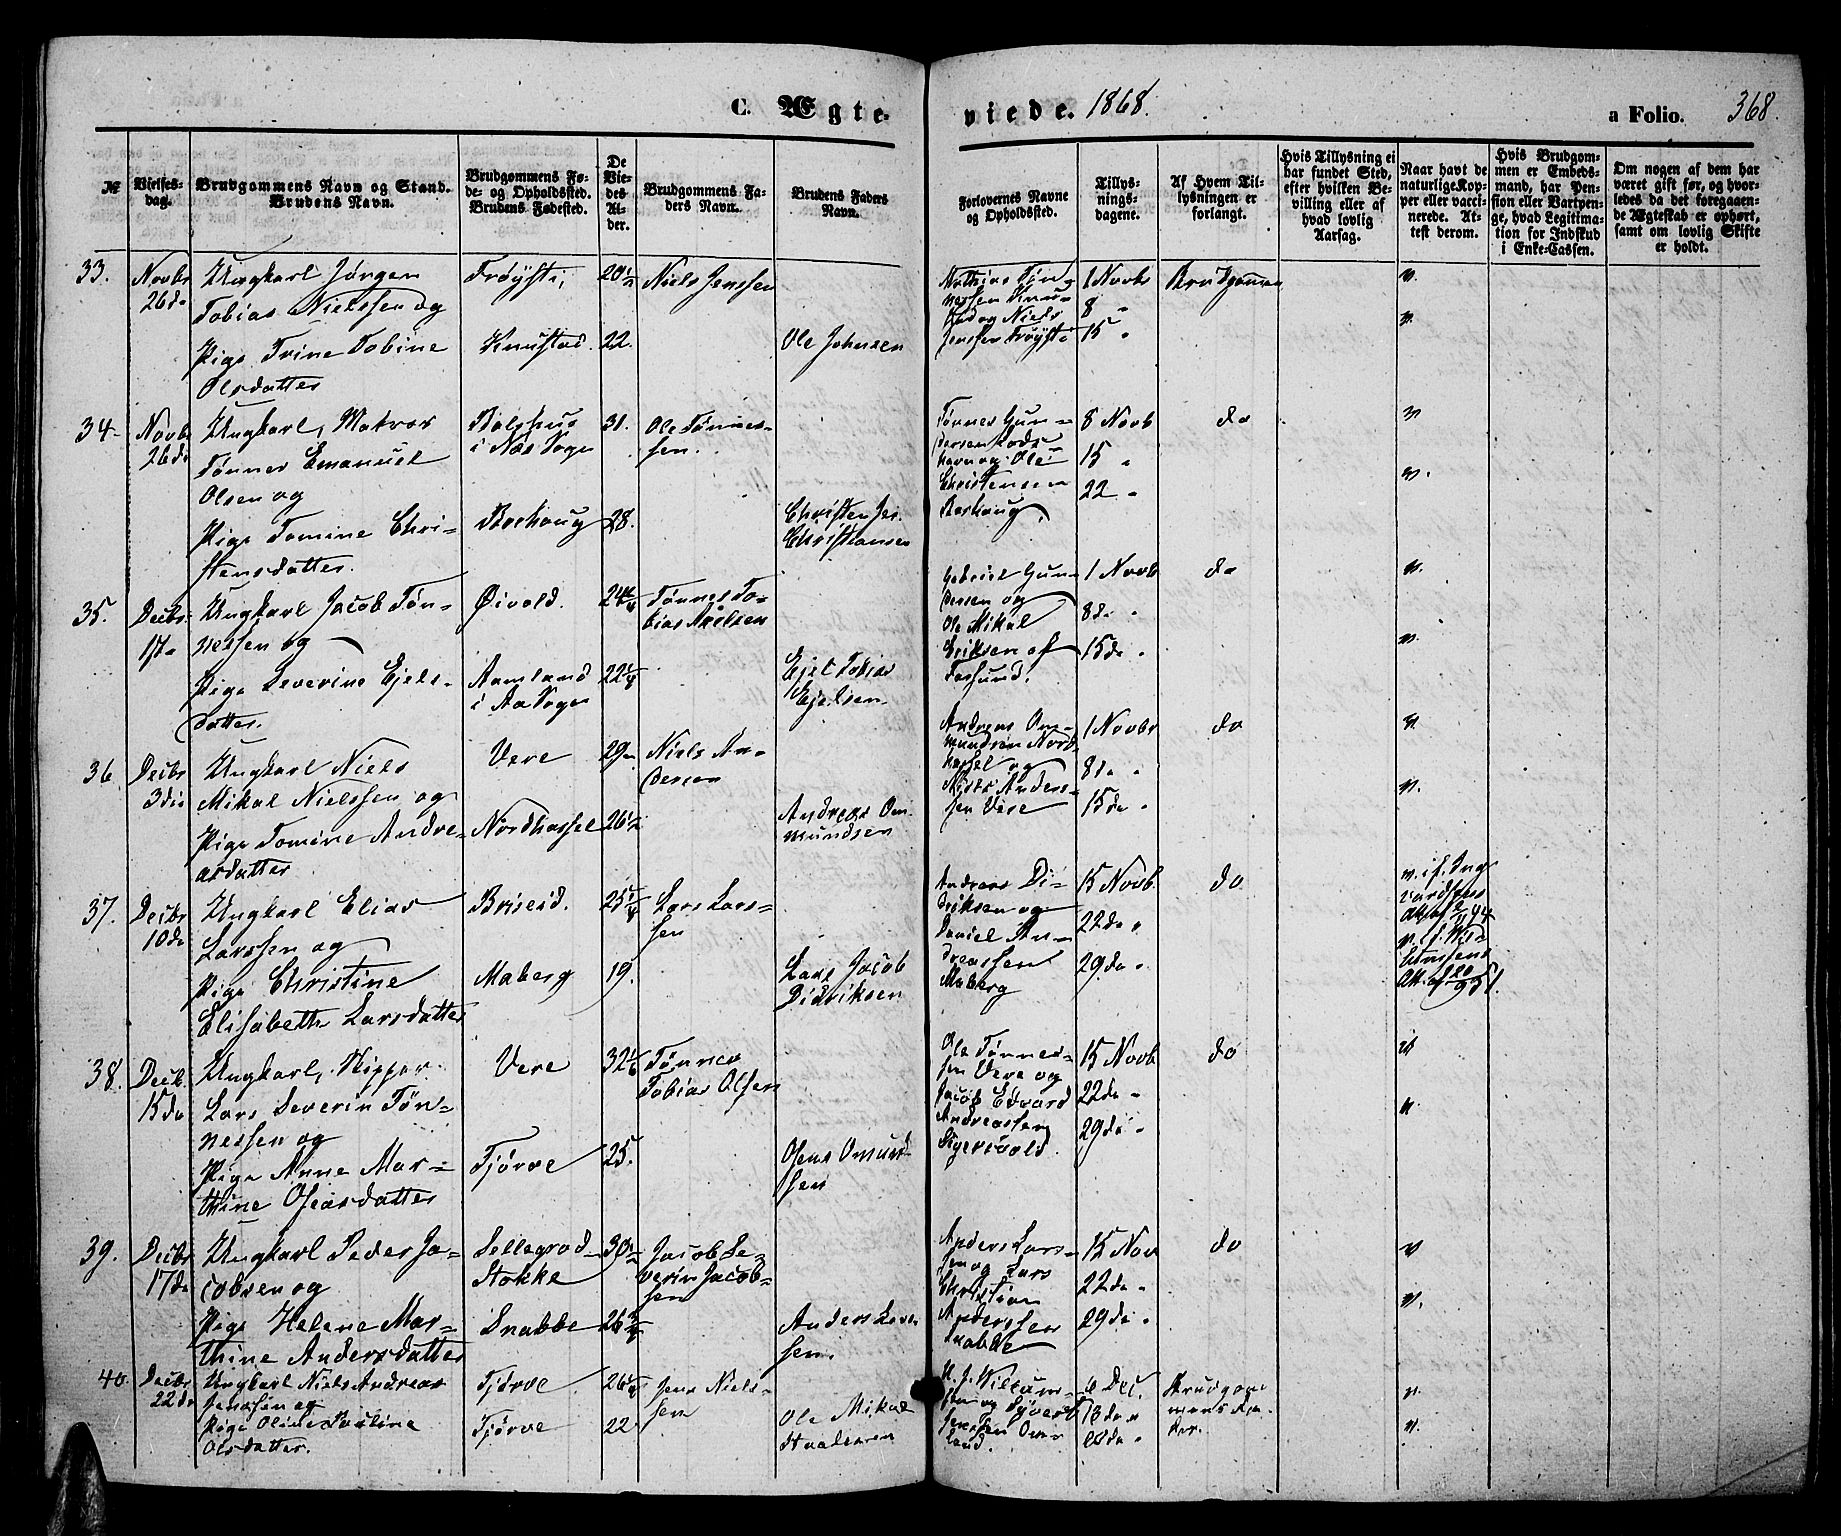 C. Ægte-
viede. 1868.
a Folio. 368.
№
Vielses-
dag.
Brudgommens Navn og Stand.
Brudens Navn.
Brudgommens Fø-
de- og Opholdssted.
Brudens Fødested.
De
Vie-
des
Al-
der.
Brudgommens Fa-
ders Navn.
Brudens Faders
Navn.
Forlovernes Navne
og Opholdssted.
Tillys-
nings-
dagene.
Af Hvem Til-
lysningen er
forlangt.
Hvis Tillysning ei
har fundet Sted,
efter hvilken Be-
villing eller af
hvad lovlig
Aarsag.
Naar havt de
naturlige Kop-
per eller vacci-
nerede. At-
test derom.
Hvis Brudgom-
men er Embeds-
mand, har Pen-
sion eller Vartpen-
ge, hvad Legitima-
tion for Indskud
i Enke-Cassen.
Om nogen af dem har
været gift før, og hvor-
ledes da det foregaaen-
de Ægteskab er ophørt,
samt om lovlig Skifte
er holdt.
33.
Novbr
26de
Ungkarl Jørgen
Tobias Nielssen og
Pige Trine Tobine
Olsdatter
Trøysti,
Knustad.
20½
22.
Niels Jenssen
Ole Johnsen
Mathias Tøn-
nessen Knu-
stad og Niels
Jenssen Trøysti
1 Novbr
8 "
15 "
Brudgommen
v.
v.
34.
Novbr
26de
Ungkarl, Matros
Tønnes Emanuel
Olsen og
Pige Tomine Chri-
stensdatter.
i Næs Sogn
Borhaug
31.
28.
Ole Tønnes-
sen.
Christen Jes.
Christiansen
Tønnes Gun-
dersen Lods
havn og Ole
Christensen
Borhaug.
8 Novb
15 "
22 "
do
v.
v.
35.
Decbr
17de
Ungkarl Jacob Tøn-
nessen og
Pige Severine Ejels-
datter.
Øivold.
Aamland
i Aa Sogn
24¼
22¼
Tønnes To-
bias Nielsen
Ejel Tobias
Ejelsen
Gabriel Gun-
dersen og
Ole Mikal
Eriksen af
Farsund.
1 Novb
8de "
15de "
do
v.
v.
36.
Decbr
3die
Ungkarl Niels
Mikal Nielssen og
Pige Tomine Andre-
asdatter
Vere
Nordhassel
29
26½
Niels An-
dersen
Andreas Om-
mundsen
Andreas Om-
mundsen Nord-
hassel og
Niels Anders-
sen Vere
1 Novbr
8de "
15de "
do
v.
v.
37.
Decbr
10de
Ungkarl Elias
Larssen og
Pige Christine
Elisabeth Larsdatter
Briseid.
Maberg
25¼
19.
Lars Lars-
sen
Lars Jacob
Didriksen
Andreas Di-
driksen og
Daniel An-
dreassen
Maberg
15 Novb.
22de "
29de "
do
v. if. Ing-
vardsens
v. if. Wil-
38.
Decb.
15de
Ungkarl, Skipper
Lars Severin Tøn-
nessen og
Pige Anne Mar-
thine Oseasdatter
Vere
Tjørve
32
25.
Tønnes
Tobias Olsen
Oseas Omund-
sen
Ole Tønnes-
sen Vere og
Jacob Edvard
Andreassen
15 Novb
22de "
29de "
do
v.
39.
Decbr
17de
Ungkarl Peder Ja-
cobsen og
Pige Helene Mar-
thine Andersdatter
Sellegrod-
Stokke
Snabbe
30
26
Jacob Se-
verin Jacob-
sen
Anders Lars-
sen.
Anders Lars-
sen og Lars
Christian
Anderssen
Snabbe
15 Nov
22de "
29de "
do
v
v.
40.
Decbr
22de
Ungkarl Niels Andreas
Jenssen og
Pige Oline Pauline
Olsdatter.
Tjørve
Tjørve
26¼
22
Jens Niels-
sen
Ole Mikal
Staalesen
6 Dec.
13de "
Brudgom-
mens
v.
v.